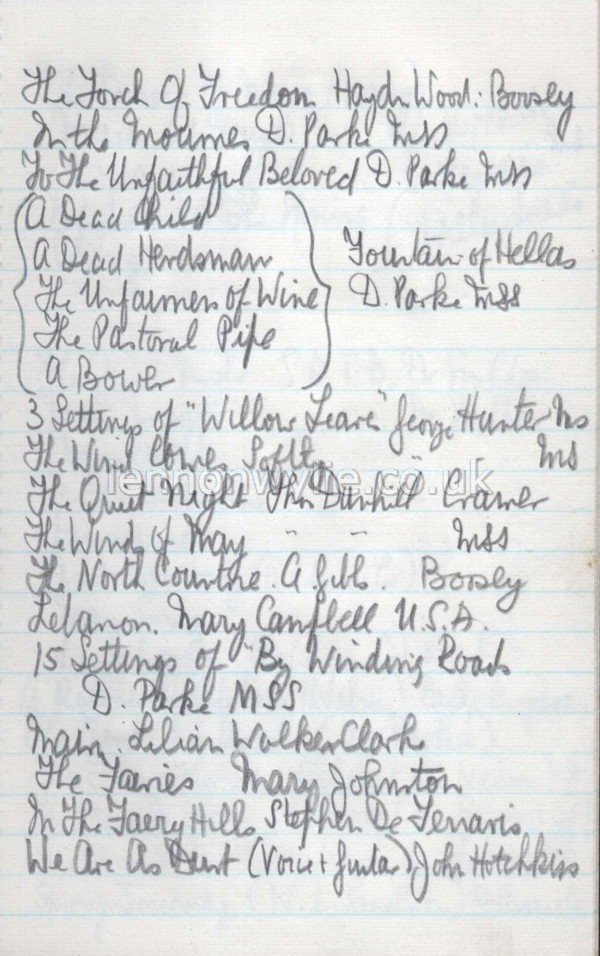 The Torch Of Freedom Haydn Wood: Boosey
In the Mournes D. Parke MSS
To The Unfaithful Beloved D. Parke MSS
A Dead Child
A Dead Herdsman Fountain of Hellas
The Unfairness of Wine D. Parke MSS
The Pastoral Pipe
A Bower
3 Settings of "Willow Leaves" George Hunter MS
The Wind Comes Softly " " MS
The Quiet Night Thos Dunhill Cramer
The Winds of May " " MSS
The North Countrie. A Gibbs. Boosey
Lebanon. Mary Campbell U.S.A.
15 Settings of "By Winding Roads
D. Parke MSS
Lilian Walker Clark
The Faeries Mary Johnston
In The Faery Hills Stephen De
We Are As Dust (Voice + Guitar) John Hotchkiss
lennonwylie.co.uk